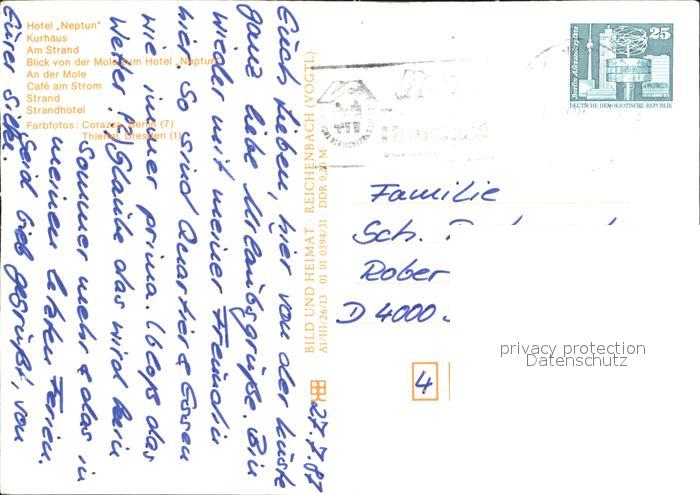 Hotel „Neptun"
Kurhaus
Am Strand
Blick von der Mole zum Hotel „Neptun"
An der Mole
Café am Strom
Strand
Strandhotel
Farbfotos: Corazza, Berlin (7)
Thienel, Dresden (1)
27.7.87
Euch Lieben, hier von der Küste
ganz liebe Urlaubsgrüße. Bin
wieder mit meiner Freundin
hier. So sind Quartier & Essen
wie immer prima. (bloß das
Wetter !?) Glaube das wird kein
Sommer mehr & das in
meinen letzten Ferien.
Seid lieb gegrüßt, von
Eurer Silke.
BILD UND HEIMAT · REICHENBACH (VOGTL)
A1/III/26/13 01 01 0394/31 DDR 0,20 M
25
Berlin, Alexanderplatz
DEUTSCHE DEMOKRATISCHE REPUBLIK
Familie
Sch.
Rober
D 4000
4
privacy protection
Datenschutz